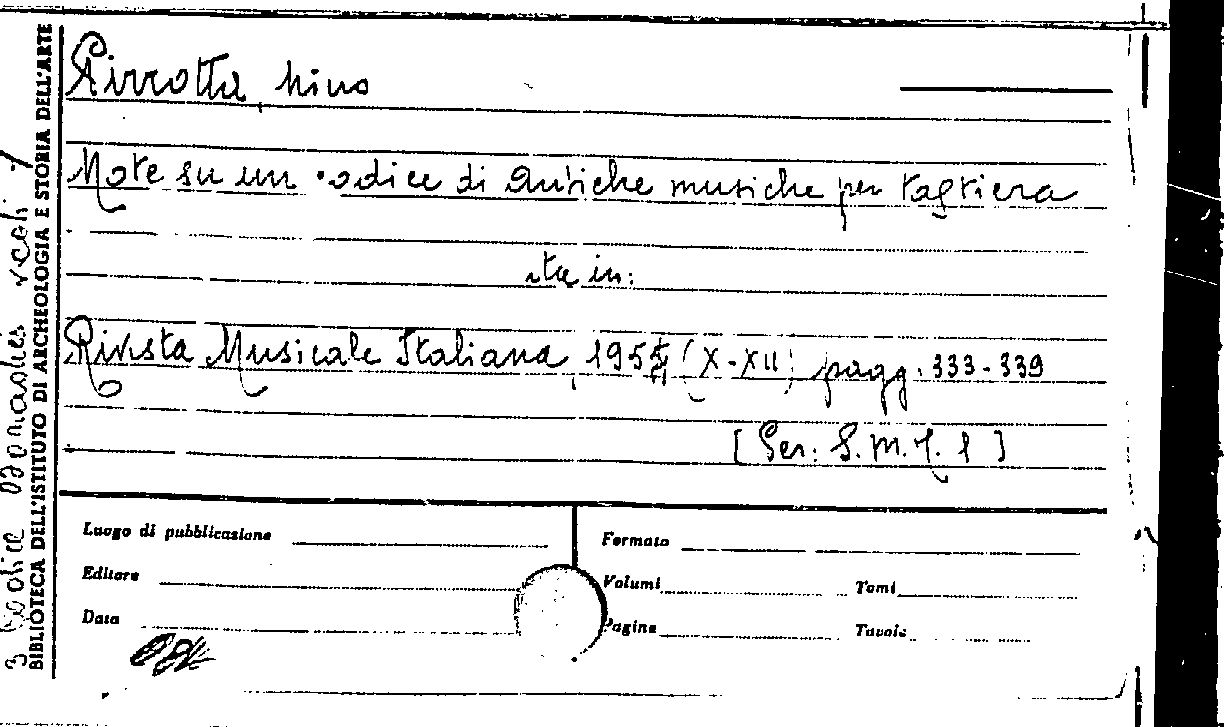 Pirrotta, Nino
Note su un codice di antiche musiche per tastiera
sta in:
Rivista Musicale Italiana, 1954 (X-XII) pagg. 333-339
[Per: S.M.I. 1]
Luogo di pubblicazione
Formato
Editore
Volumi
Tomi
Data
Pagine
Tavole
BIBLIOTECA DELL'ISTITUTO DI ARCHEOLOGIA E STORIA DELL'ARTE